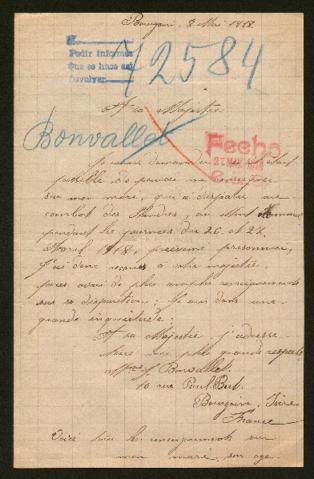 Bourgoin, 8 Mai 1918
Pedir informes
Que se hace así
Devolver
72584
A sa Majesté
Bonvallet
Fecho
possible de pouvoir me renseigner
sur mon mari, qui a disparu au
combat des Flandres, au Mont
pendant les journées du 26 et 27
Avril 1918, prisonnier,
J'ai donc recours à votre majesté
pour avoir de plus amples renseignements
sur sa disparition: je suis dans une
grande inquiétude:
A sa Majesté j'adresse
mes plus grands respects
Mme Bonvallet
10 rue Paul Bert
Bourgoin, Isère
France
Voici tous les renseignements sur
mon mari, son age.